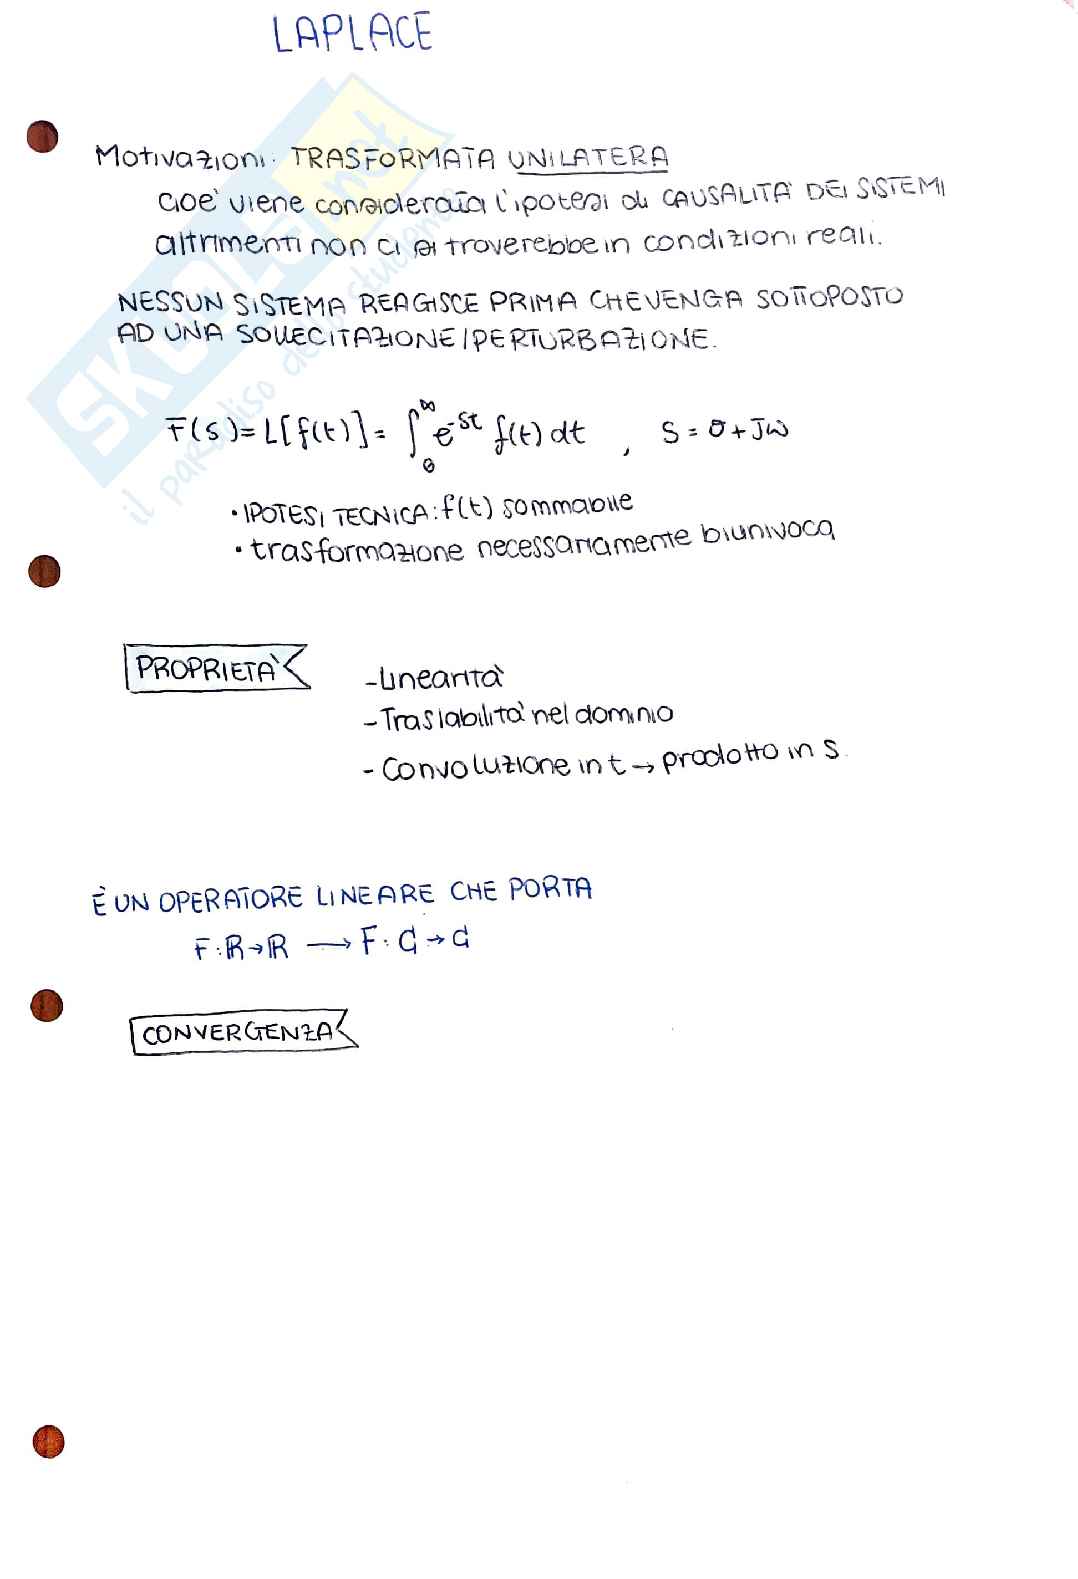 LAPLACE
Motivazioni: TRASFORMATA UNILATERA
cioè viene considerata l'ipotesi di CAUSALITÀ DEI SISTEMI
altrimenti non ci si troverebbe in condizioni reali.
NESSUN SISTEMA REAGISCE PRIMA CHE VENGA SOTTOPOSTO
AD UNA SOLLECITAZIONE/PERTURBAZIONE.
F(s)=L[f(t)]= ∫₀^∞ e^-st f(t) dt , S = σ + Jω
• IPOTESI TECNICA: f(t) sommabile
• trasformazione necessariamente biunivoca
PROPRIETÀ
- Linearità
- Traslabilità nel dominio
- Convoluzione in t → prodotto in S.
È UN OPERATORE LINEARE CHE PORTA
F: ℝ→ℝ ⟶ F: ℂ→ℂ
CONVERGENZA
SKUOLA.net
il paradiso dello studente